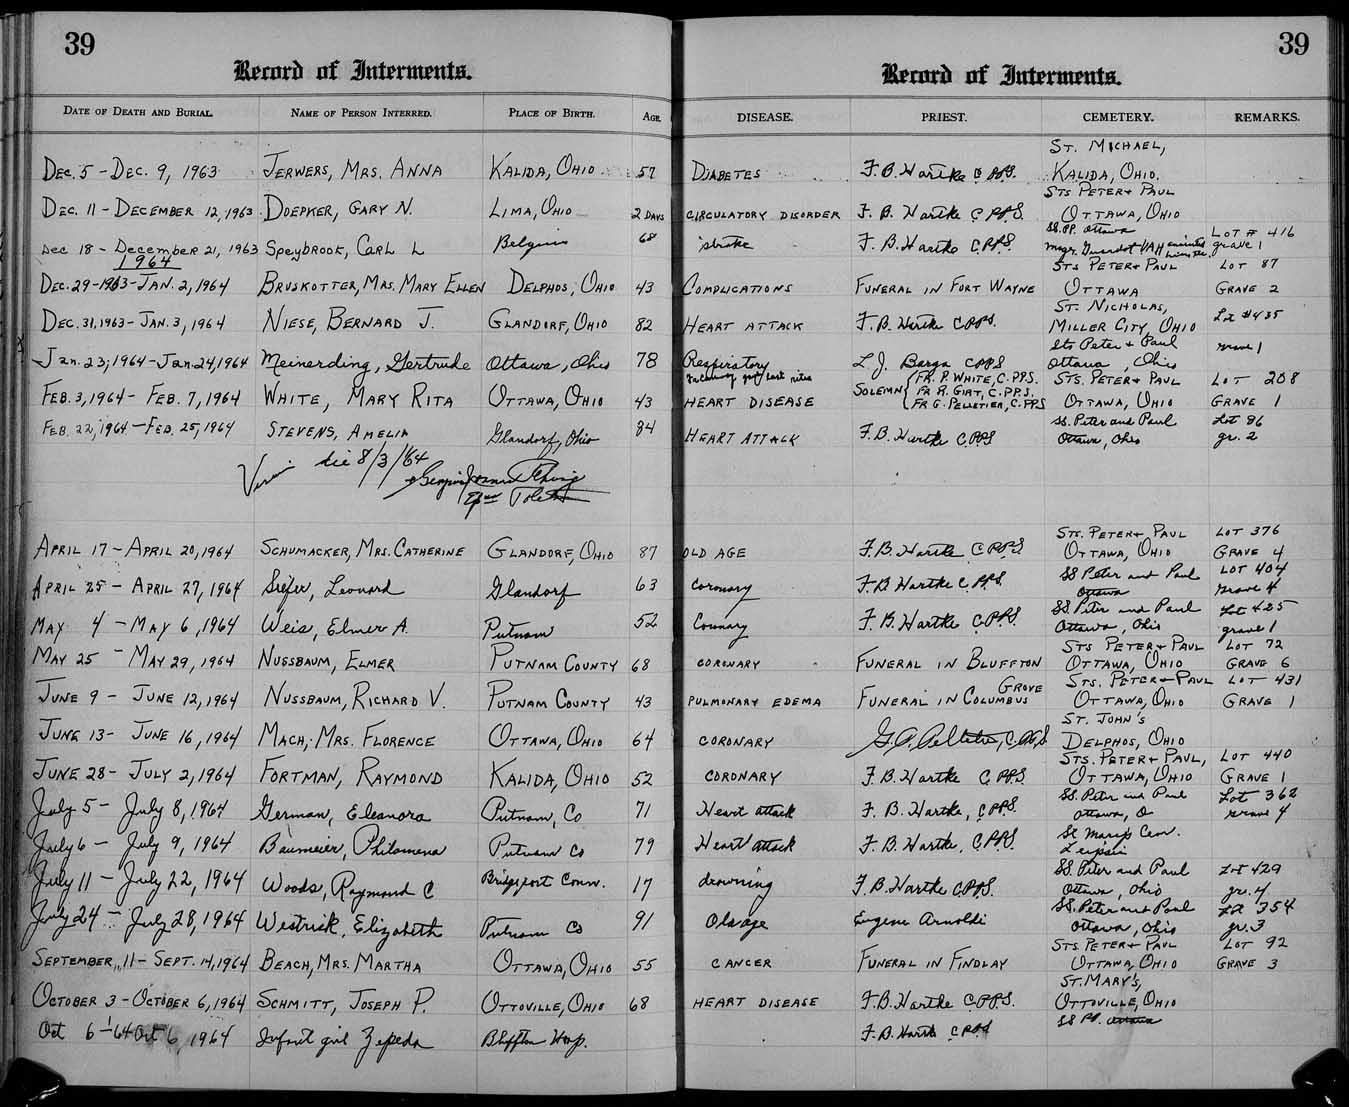 39
39
Record of Interments.
Record of Interments.
DATE OF DEATH AND BURIAL. NAME OF PERSON INTERRED. PLACE OF BIRTH. AGE. DISEASE. PRIEST. CEMETERY. REMARKS.
ST. MICHAEL,
DEC. 5 - DEC. 9, 1963 JERWERS, MRS. ANNA KALIDA, OHIO 57 DIABETES F. B. Hartke C.PP.S. KALIDA, OHIO.
STS PETER + PAUL
DEC. 11 - DECEMBER 12, 1963 DOEPKER, GARY N. LIMA, OHIO 2 DAYS CIRCULATORY DISORDER F. B. Hartke C.PP.S. OTTAWA, OHIO
SS. PP. Ottawa LOT # 416
DEC 18 - December 21, 1963 Speybrook, Carl L Belgium 68 stroke F. B. Hartke C.PP.S. Msgr. grave 1
1964
STS PETER + PAUL LOT 87
DEC. 29-1963-JAN. 2, 1964 BRUSKOTTER, MRS. MARY ELLEN DELPHOS, OHIO 43 COMPLICATIONS FUNERAL IN FORT WAYNE OTTAWA GRAVE 2
ST. NICHOLAS,
DEC. 31, 1963 - JAN. 3, 1964 NIESE, BERNARD J. GLANDORF, OHIO 82 HEART ATTACK F. B. Hartke C.PP.S. MILLER CITY, OHIO Lot #435
Sts Peter + Paul grave 1
Jan. 23, 1964 - Jan. 24, 1964 Meinerding, Gertrude Ottawa, Ohio 78 Respiratory L. J. C.PP.S Ottawa, Ohio
last rites FR. P. WHITE, C.PP.S. STS. PETER + PAUL LOT 208
FEB. 3, 1964 - FEB. 7, 1964 WHITE, MARY RITA OTTAWA, OHIO 43 HEART DISEASE SOLEMN { FR R. GIRT, C.PP.S. OTTAWA, OHIO GRAVE 1
FR G. PELLETIER, C.PP.S
SS. Peter and Paul Lot 86
FEB. 22, 1964 - FEB. 25, 1964 STEVENS, AMELIA Glandorf, Ohio 84 HEART ATTACK F. B. Hartke C.PP.S Ottawa, Ohio gr. 2
die 8/3/64
STS. PETER + PAUL LOT 376
APRIL 17 - APRIL 20, 1964 SCHUMACKER, MRS. CATHERINE GLANDORF, OHIO 87 OLD AGE F. B. Hartke C.PP.S OTTAWA, OHIO GRAVE 4
SS Peter and Paul LOT 404
APRIL 25 - APRIL 27, 1964 Siefer, Leonard Glandorf 63 Coronary F. B. Hartke C.PP.S. Ottawa grave 4
SS. Peter and Paul Lot 425
MAY 4 - MAY 6, 1964 Weis, Elmer A. Putnam 52 Coronary F. B. Hartke C.PP.S. Ottawa, Ohio grave 1
STS PETER + PAUL LOT 72
MAY 25 - MAY 29, 1964 NUSSBAUM, ELMER PUTNAM COUNTY 68 CORONARY FUNERAL IN BLUFFTON OTTAWA, OHIO GRAVE 6
GROVE STS. PETER + PAUL LOT 431
JUNE 9 - JUNE 12, 1964 NUSSBAUM, RICHARD V. PUTNAM COUNTY 43 PULMONARY EDEMA FUNERAL IN COLUMBUS OTTAWA, OHIO GRAVE 1
ST. JOHN'S
JUNE 13 - JUNE 16, 1964 MACH, MRS. FLORENCE OTTAWA, OHIO 64 CORONARY G. P. Pelletier, C.PP.S DELPHOS, OHIO
STS. PETER + PAUL, LOT 440
JUNE 28 - JULY 2, 1964 FORTMAN, RAYMOND KALIDA, OHIO 52 CORONARY F. B. Hartke C.PP.S OTTAWA, OHIO GRAVE 1
SS. Peter and Paul Lot 362
July 5 - July 8, 1964 German, Eleanora Putnam, Co 71 Heart attack F. B. Hartke, C.PP.S. Ottawa, O grave 4
St Mary's Cem.
July 6 - July 9, 1964 Baumeier, Philomena Putnam Co 79 Heart attack F. B. Hartke, C.PP.S. Leipsic
SS. Peter and Paul Lot 429
July 11 - July 22, 1964 Woods, Raymond C Bridgeport Conn. 17 drowning F. B. Hartke C.PP.S. Ottawa, Ohio gr. 4
SS. Peter and Paul Lot 354
July 24 - July 28, 1964 Westrick, Elizabeth Putnam Co 91 Old age Eugene Arnoldi Ottawa, Ohio gr. 3
STS. PETER + PAUL LOT 92
SEPTEMBER, 11 - SEPT. 14, 1964 BEACH, MRS. MARTHA OTTAWA, OHIO 55 CANCER FUNERAL IN FINDLAY OTTAWA, OHIO GRAVE 3
ST. MARY'S,
OCTOBER 3 - OCTOBER 6, 1964 SCHMITT, JOSEPH P. OTTOVILLE, OHIO 68 HEART DISEASE F. B. Hartke C.PP.S. OTTOVILLE, OHIO
SS PP. Ottawa
Oct 6-64 Oct 6, 1964 Infant girl Zepeda Bluffton Hosp. F. B. Hartke C.PP.S